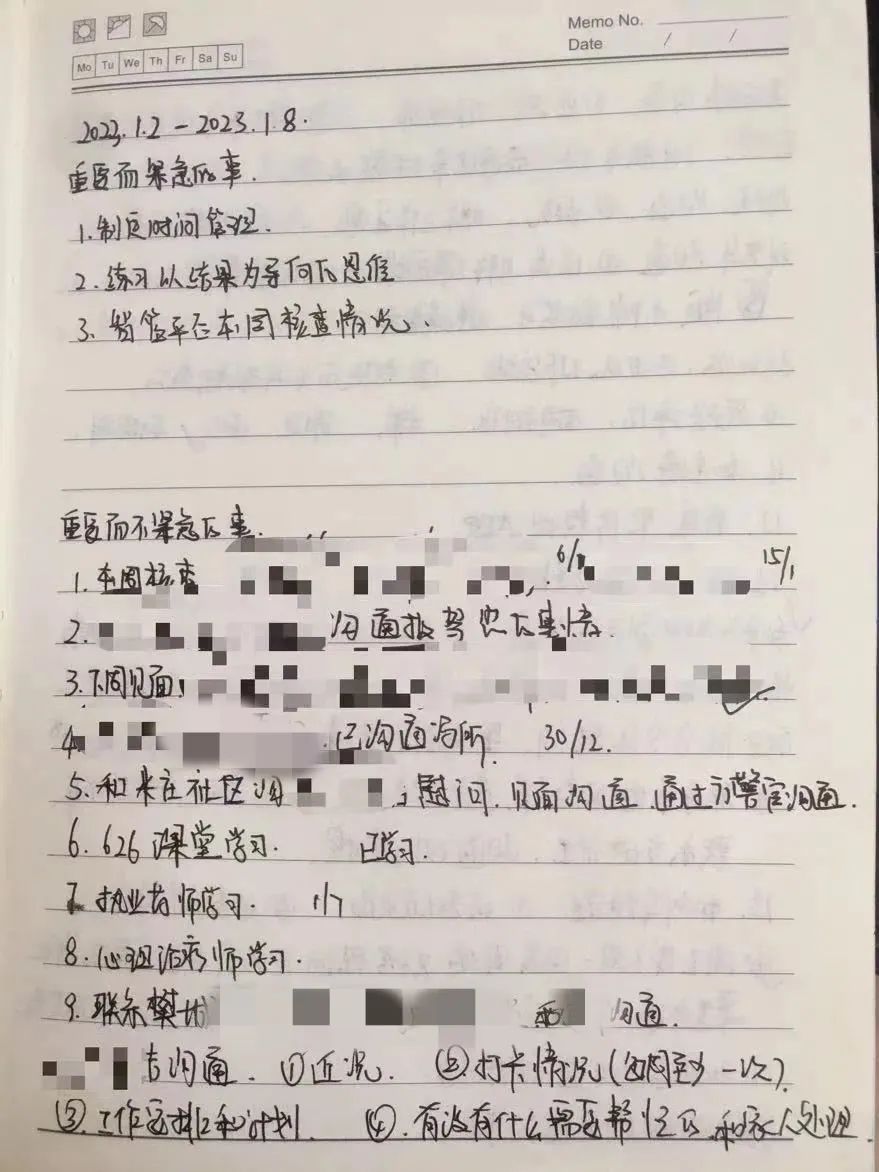 Memo No.
Date / /
Mo Tu We Th Fr Sa Su
2023.1.2-2023.1.8.
重要而紧急的事.
1.制定时间管理.
2.练习以结果为导向的思维
3.智管平台本周核查情况.
重要而不紧急的事.
1.本周核查 6/1 15/1
2. 沟通报驾照的事情.
3.下周见面:
4. 已沟通场所. 30/12.
5.和来庄社区沟 慰问.见面沟通 通过方警官沟通.
6.626课堂学习. 已学习.
7.执业药师学习. 1/7
8.心理治疗师学习.
9.联系樊 和 沟通.
沟通. ①近况. ②打卡情况(每周至少一次).
③.工作安排和计划. ④.有没有什么需要帮忙的.和家人处理.